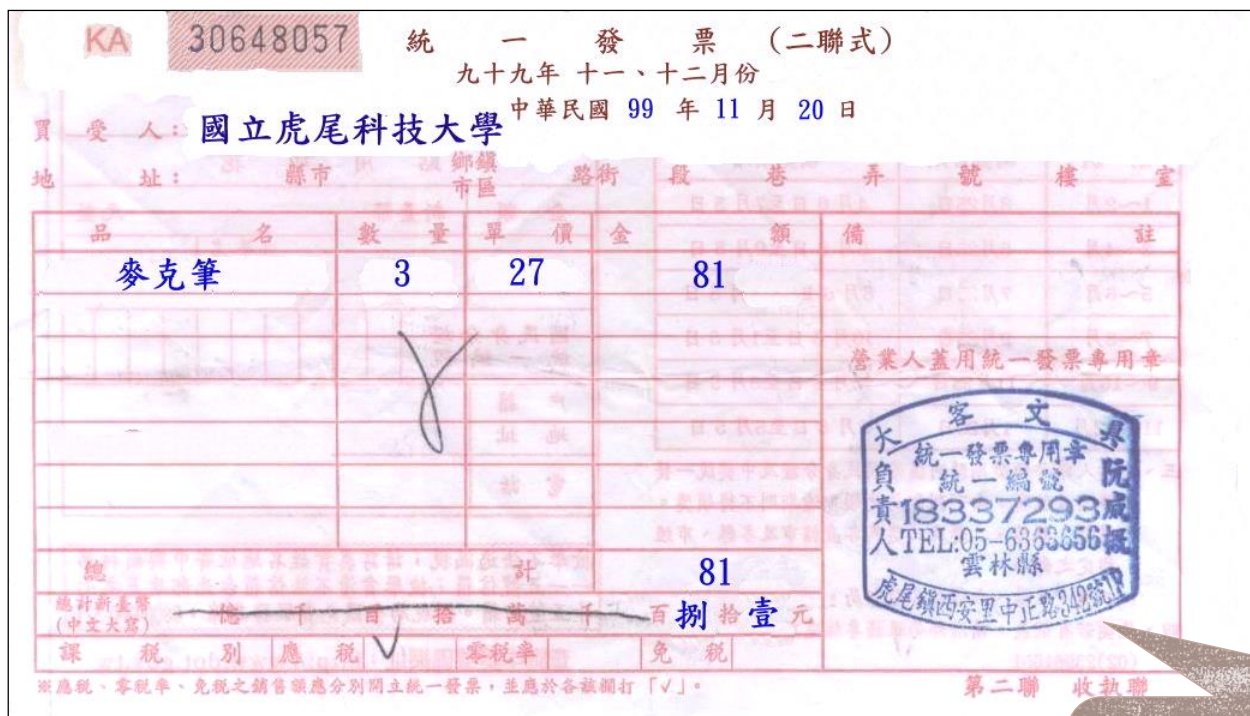 KA 30648057 統 一 發 票 (二聯式)
九十九年 十一、十二月份
中華民國 99 年 11 月 20 日
買 受 人: 國立虎尾科技大學
地 址: 縣市 鄉鎮市區 路街 段 巷 弄 號 樓 室
品 名 數 量 單 價 金 額 備 註
麥克筆 3 27 81
營業人蓋用統一發票專用章
大 客 文 具
統一發票專用章
統一編號
18337293
負責人 阮威
TEL:05-6363656
雲林縣
虎尾鎮西安里中正路342號1F
總 計 81
總計新臺幣
(中文大寫) 億 千 百 拾 萬 千 百 捌 拾 壹 元
課 稅 別 應 稅 V 零稅率 免 稅
※應稅、零稅率、免稅之銷售額應分別開立統一發票,並應於各該欄打「V」。
第二聯 收執聯